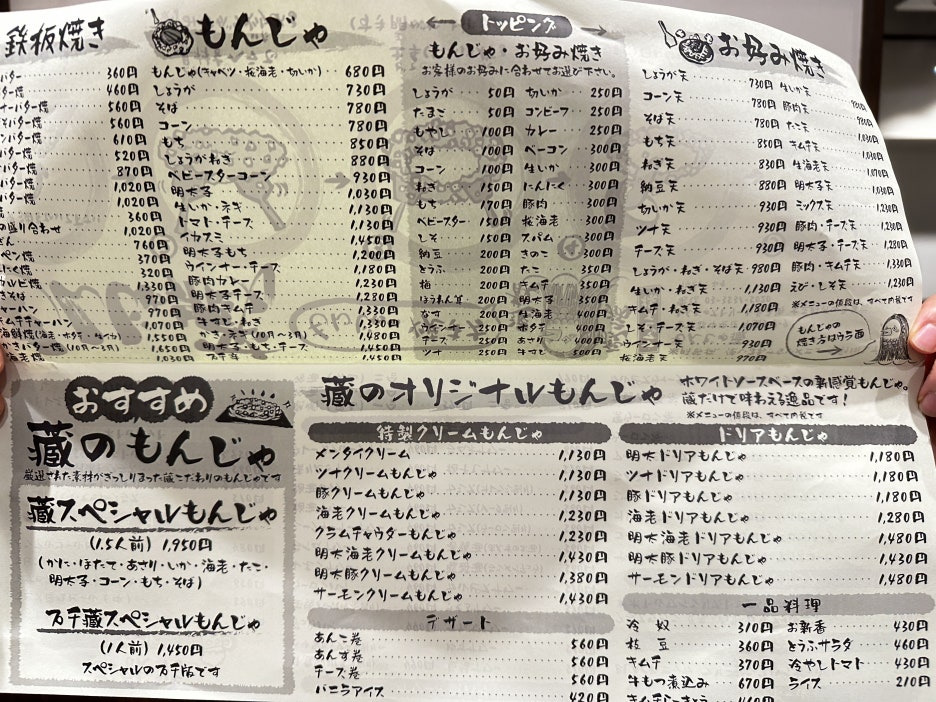 鉄板焼き
バター 360円
ター焼 460円
ーバター焼 560円
バター焼 560円
ンバター焼 610円
バター焼 520円
バター焼 870円
バター焼 1,020円
バター焼 1,020円
焼 360円
の盛り合わせ 1,020円
760円
ペン焼 370円
にく焼 320円
カルビ焼 1,330円
きそば 970円
チャーハン 970円
キムチチャーハン 1,070円
1,550円
かきバター焼(10月〜3月) 1,650円
1,030円
もんじゃ
もんじゃ(キャベツ・桜海老・切いか) 680円
しょうが 730円
そば 780円
コーン 780円
もち 850円
しょうがねぎ 880円
ベビースターコーン 930円
明太子 1,030円
生いか・ネギ 1,130円
トマト・チーズ 1,130円
イカスミ 1,450円
明太子もち 1,200円
ウインナー・チーズ 1,180円
豚肉カレー 1,230円
明太子チーズ 1,280円
豚肉キムチ 1,330円
牛すじ・ねぎ 1,330円
かき・ネギ(10月〜3月) 1,450円
明太子・もち・チーズ 1,450円
五千倉 1,450円
トッピング
もんじゃ・お好み焼き
お客様のお好みに合わせてお選び下さい。
しょうが 50円
たまご 50円
もやし 100円
そば 100円
コーン 100円
ねぎ 150円
もち 170円
ベビースター 150円
しそ 150円
納豆 200円
とうふ 200円
梅 200円
ほうれん草 200円
なす 200円
ウインナー 250円
チーズ 250円
ツナ 250円
切いか 250円
コンビーフ 250円
カレー 250円
ベーコン 300円
生いか 300円
にんにく 300円
豚肉 300円
桜海老 300円
スパム 300円
きのこ 300円
たこ 350円
キムチ 350円
明太子 350円
生海老 400円
ホタテ 400円
あさり 400円
牛すじ 500円
お好み焼き
しょうが天 730円
コーン天 780円
そば天 780円
もち天 850円
ねぎ天 830円
納豆天 880円
切いか天 930円
ツナ天 930円
チーズ天 930円
しょうが・ねぎ・そば天 980円
生いか・ねぎ天 1,130円
キムチ・ねぎ天 1,180円
しそ・チーズ天 1,070円
ウインナー天 930円
桜海老天 970円
生いか天 980円
豚肉天 980円
たこ天 1,030円
キムチ天 1,030円
生海老天 1,070円
明太子天 1,030円
ミックス天 1,230円
豚肉・チーズ天 1,230円
明太子・チーズ天 1,280円
豚肉・キムチ天 1,330円
えび・しそ天 1,230円
※メニューの値段は、すべて内税です
もんじゃの
焼き方はウラ面
おすすめ
蔵のもんじゃ
厳選された素材がぎっしりつまった蔵こだわりのもんじゃです
蔵スペシャルもんじゃ
(1.5人前) 1,950円
(かに・ほたて・あさり・いか・海老・たこ・
明太子・コーン・もち・そば)
プチ蔵スペシャルもんじゃ
(1人前) 1,450円
スペシャルのプチ版です
蔵のオリジナルもんじゃ
ホワイトソースベースの新感覚もんじゃ。
蔵だけで味わえる逸品です!
※メニューの値段は、すべて内税です
特製クリームもんじゃ
メンタイクリーム 1,130円
ツナクリームもんじゃ 1,130円
豚クリームもんじゃ 1,130円
海老クリームもんじゃ 1,230円
クラムチャウダーもんじゃ 1,230円
明太海老クリームもんじゃ 1,430円
明太豚クリームもんじゃ 1,380円
サーモンクリームもんじゃ 1,430円
デザート
あんこ巻 560円
あんず巻 560円
チーズ巻 560円
バニラアイス 420円
ドリアもんじゃ
明太ドリアもんじゃ 1,180円
ツナドリアもんじゃ 1,180円
豚ドリアもんじゃ 1,180円
海老ドリアもんじゃ 1,280円
明太海老ドリアもんじゃ 1,480円
明太豚ドリアもんじゃ 1,430円
サーモンドリアもんじゃ 1,480円
一品料理
冷奴 310円
枝豆 360円
キムチ 370円
牛もつ煮込み 670円
お新香 430円
とうふサラダ 460円
冷やしトマト 430円
ライス 210円